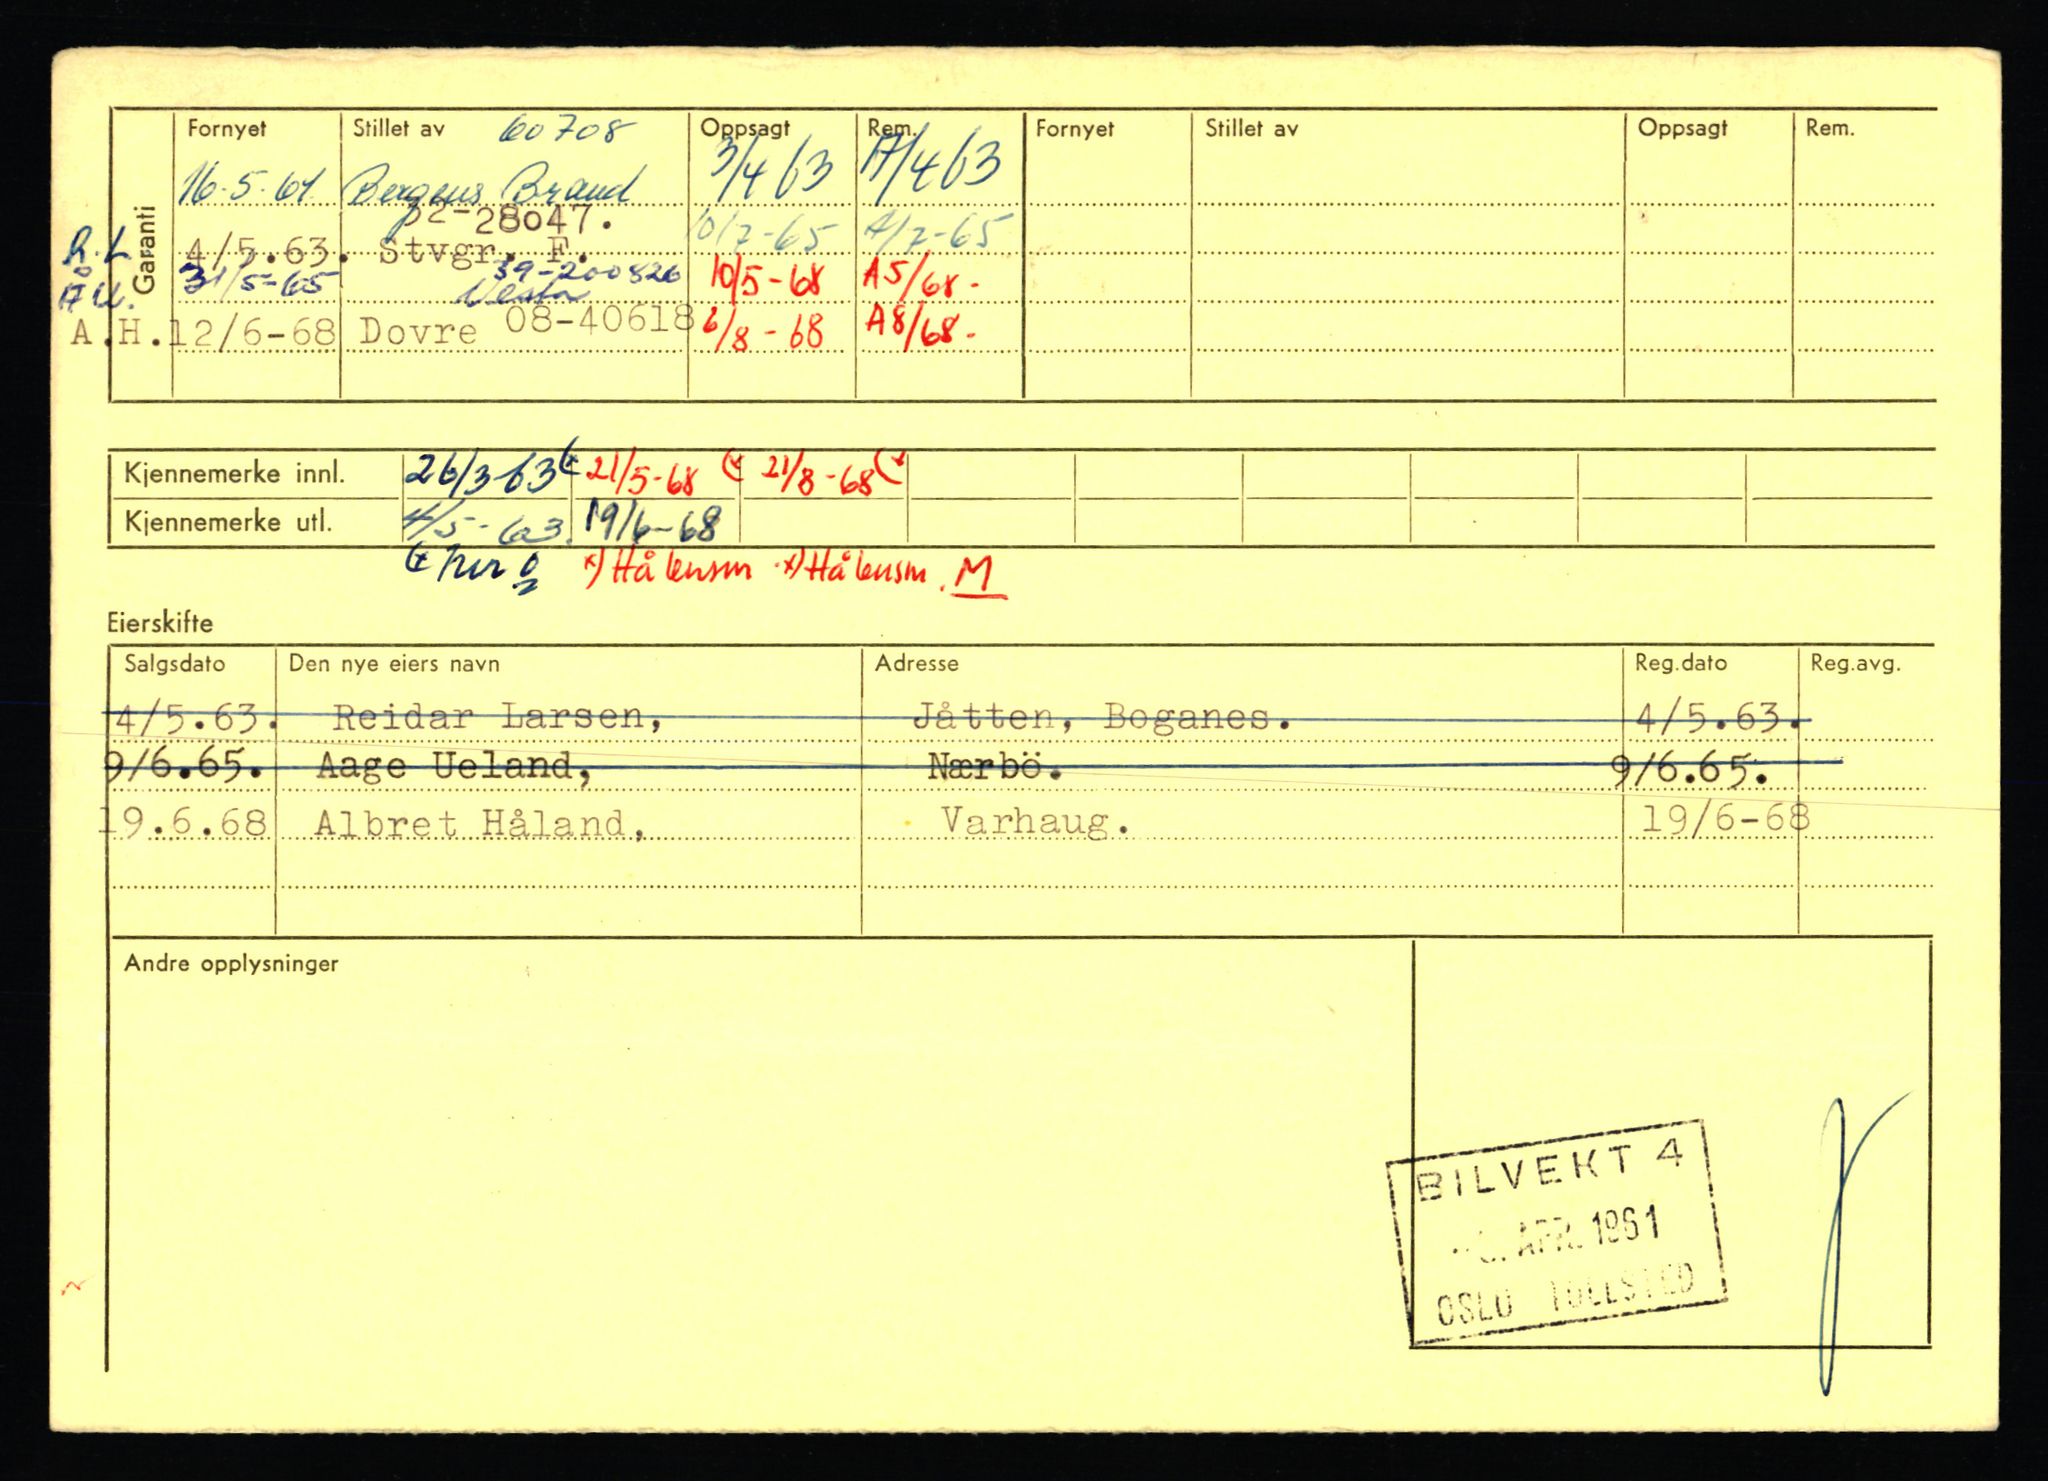 Garanti
Fornyet Stillet av 60708 Oppsagt Rem. Fornyet Stillet av Oppsagt Rem.
16.5.61 Bergens Brand 3/4 63 A/4 63
28047.
R.L 4/5.63. Stvgr. F. 10/7-65 A/7-65
39-200826
Å U. 31/5-65 Vesta 10/5-68 A5/68-
08-40618
A.H. 12/6-68 Dovre 6/8-68 A8/68-
Kjennemerke innl. 26/3-63 21/5-68 21/8-68
Kjennemerke utl. 4/5-63. 19/6-68
x) Hå lensm x) Hå lensm. M
Eierskifte
Salgsdato Den nye eiers navn Adresse Reg.dato Reg.avg.
4/5.63. Reidar Larsen, Jåtten, Boganes. 4/5.63.
9/6.65. Aage Ueland, Nærbö. 9/6.65.
19.6.68 Albret Håland, Varhaug. 19/6-68
Andre opplysninger
BILVEKT 4
APR. 1961
OSLO TOLLSTED